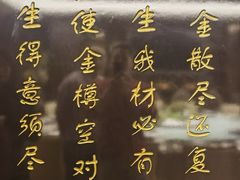 生得意须尽
使金樽空对
生我材必有
金散尽还复